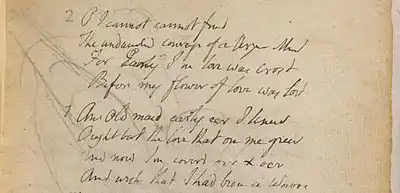 2 O I cannot cannot find
The undaunted courage of a Virgin Mind
For Early I in love was crost
Before my flower of love was lost
1 An old maid early eer I knew
Ought but the love that on me grew
And now Im coverd oer & oer
And wish that I had been a Whore